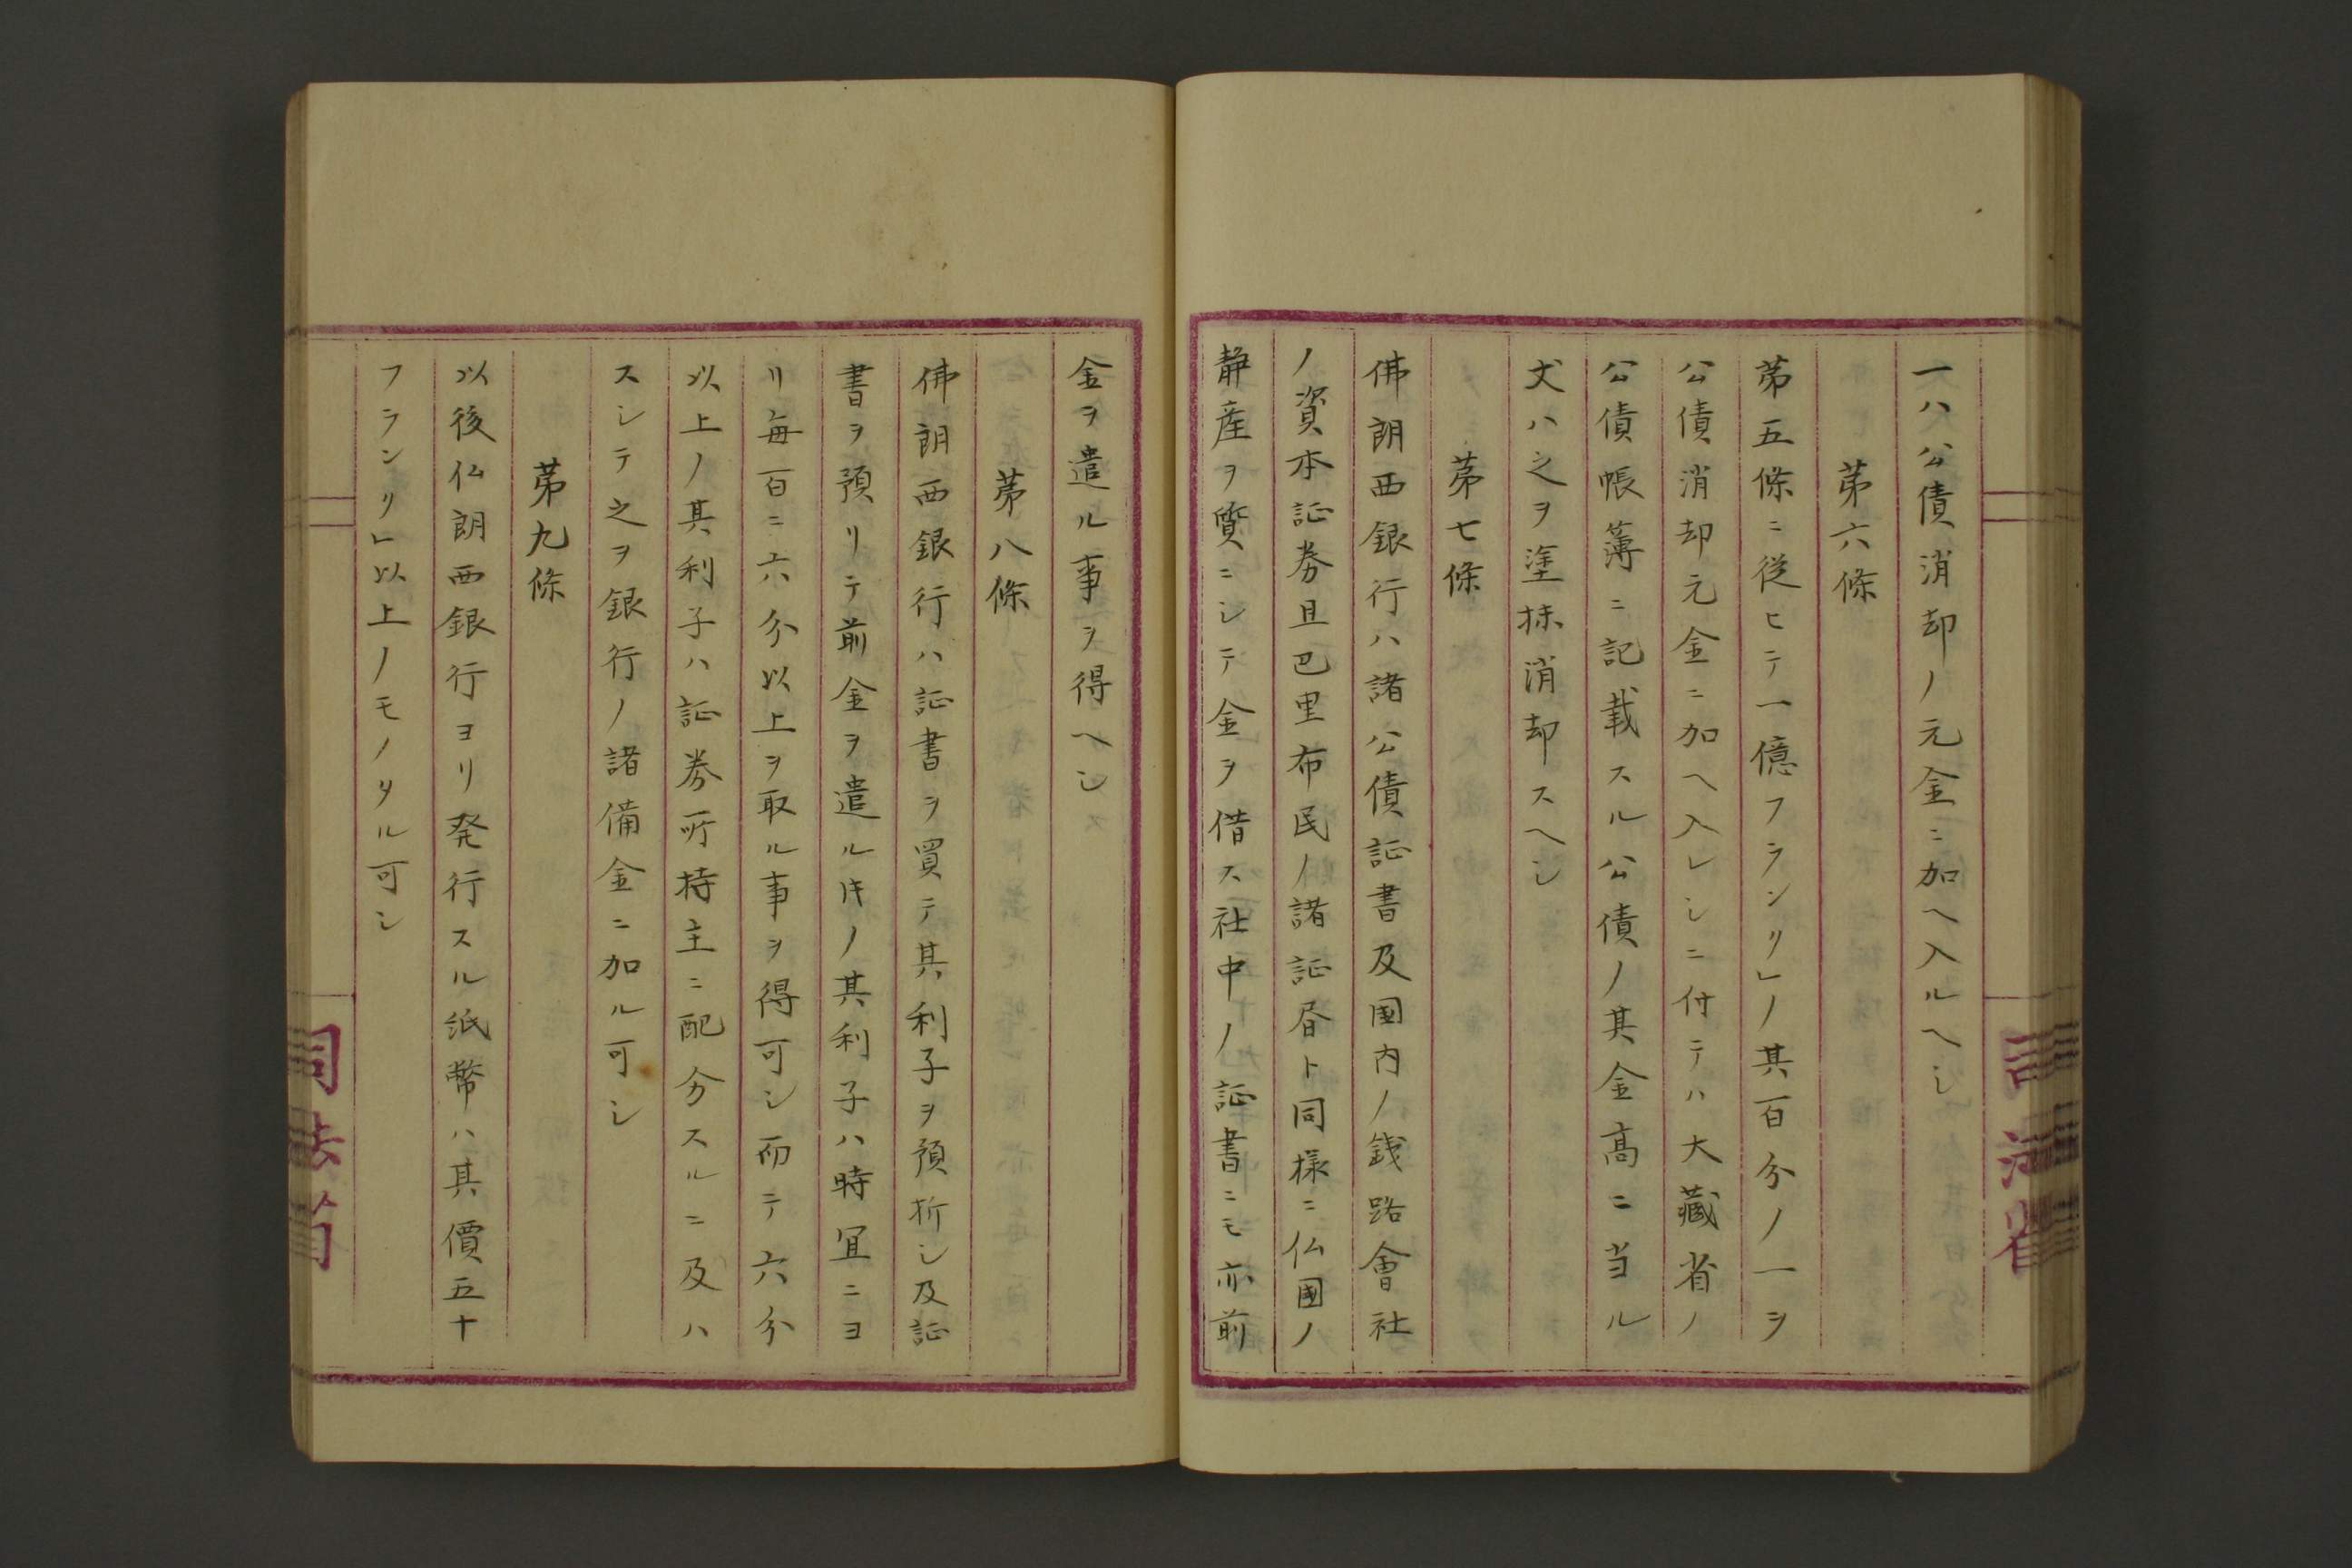 一ハ公債消却ノ元金ニ加ヘ入ルヘシ
第六條
第五條ニ從ヒテ一億フランリ」ノ其百分ノ一ヲ
公債消却元金ニ加ヘ入レシニ付テハ大藏省ノ
公債帳簿ニ記載スル公債ノ其金高ニ当ル
丈ハ之ヲ塗抹消却スヘシ
第七條
佛朗西銀行ハ諸公債証書及国内ノ銭路會社
ノ資本証券且巴里布民ノ諸証昏ト同様ニ仏國ノ
静産ヲ質ニシテ金ヲ借ス社中ノ証書ニモ亦前
金ヲ遣ル事ヲ得ヘシ
第八條
佛朗西銀行ハ証書ヲ買テ其利子ヲ預折シ及証
書ヲ預リテ前金ヲ遣ル時ノ其利子ハ時宜ニヨ
リ毎百ニ六分以上ヲ取ル事ヲ得可シ而テ六分
以上ノ其利子ハ証券所持主ニ配分スルニ及ハ
スシテ之ヲ銀行ノ諸備金ニ加ル可シ
第九條
以後仏朗西銀行ヨリ発行スル紙幣ハ其價五十
フランリ」以上ノモノタル可シ
司法省